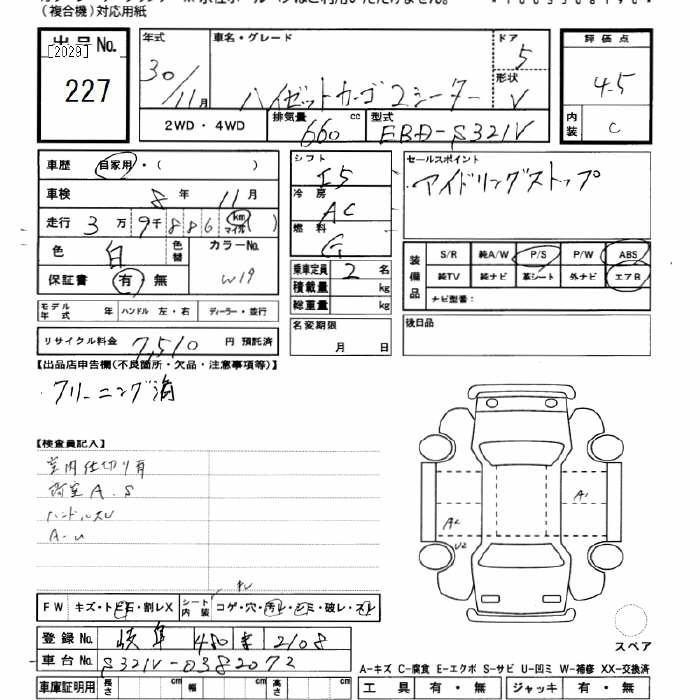 (複合機)対応用紙
出品No. [2029] 227
年式 30/11月
車名・グレード ハイゼットカーゴ2シーター
ドア 5
形状 V
評価点 4.5
内装 C
2WD・4WD
排気量 660 cc
型式 EBD-S321V
車歴 自家用・( )
車検 8年 11月
走行 3万9千886 (km マイル)
色 白 色替
カラーNo. W19
保証書 有・無
シフト I5
冷房 AC
燃料 G
乗車定員 2名
積載量 kg
総重量 kg
名変期限 月 日
セールスポイント
・アイドリングストップ
装備品 S/R 純A/W P/S P/W ABS
純TV 純ナビ 革シート 外ナビ エアB
ナビ型番:
後日品
モデル年式 年 ハンドル 左・右 ディーラー・並行
リサイクル料金 7,510 円 預託済
【出品店申告欄(不良箇所・欠品・注意事項等)】
・クリーニング済
【検査員記入】
室内仕切り有
荷室A.S
ハンドルスレ
A-U
A1
A2
U2
FW キズ・トビ石・割レX シート内装 コゲ・穴・汚レ・シミ・破レ・スレ
登録No. 岐阜 480 2108
車台No. S321V-0382072
車庫証明用 長さ cm 幅 cm 高さ cm
スペア
A-キズ C-腐食 E-エクボ S-サビ U-凹ミ W-補修 XX-交換済
工具 有・無 ジャッキ 有・無